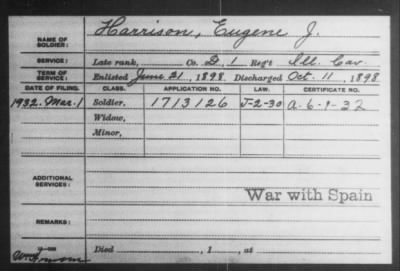 NAME OF SOLDIER: Harrison, Eugene J.
SERVICE: Late rank, Co. D, 1 Reg't Ill. Cav.
TERM OF SERVICE: Enlisted June 21, 1898. Discharged Oct. 11, 1898
DATE OF FILING. CLASS. APPLICATION NO. LAW. CERTIFICATE NO.
1932. Mar. 1 Soldier, 1713126 J-2-30 A-6-9-32
Widow,
Minor,
ADDITIONAL SERVICES:
War with Spain
REMARKS:
Died , 1 , at